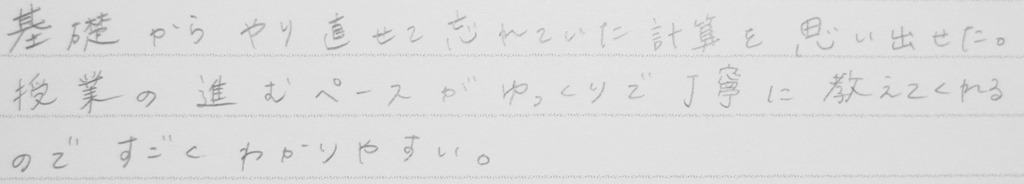 基礎からやり直せて忘れていた計算を思い出せた。
授業の進むペースがゆっくりで丁寧に教えてくれる
のですごくわかりやすい。